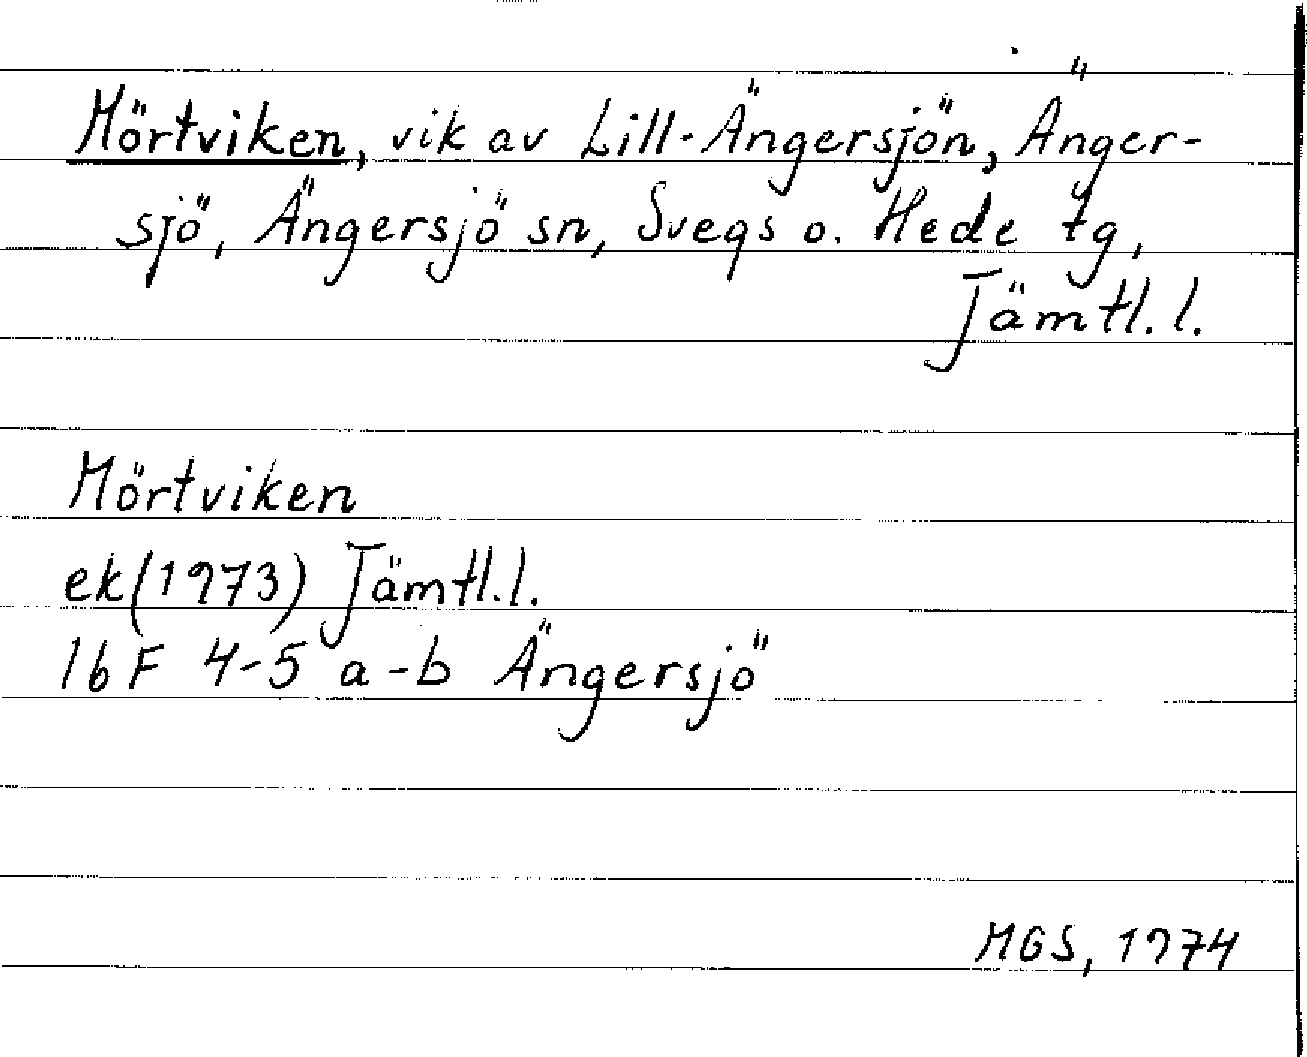 Mörtviken, vik av Lill-Ängersjön, Änger-
sjö, Ängersjö sn, Svegs o. Hede tg,
Jämtl. l.
Mörtviken
ek(1973) Jämtl.l.
16F 4-5 a-b Ängersjö
MGS, 1974